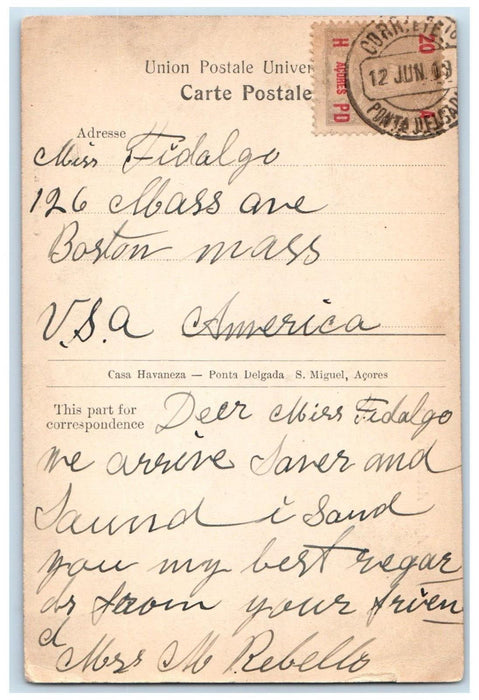 CORREIO
12 JUN. 09
PONTA DELGADA
20
H AÇORES PD
Union Postale Univer
Carte Postale
Adresse
Miss Fidalgo
126 Mass ave
Boston mass
U.S.a America
Casa Havaneza — Ponta Delgada S. Miguel, Açores
This part for
correspondence
Deer Miss Fidalgo
we arrive Saver and
Saund i Sand
you my best regar
ds from your frien
d
Mrs M Rebello